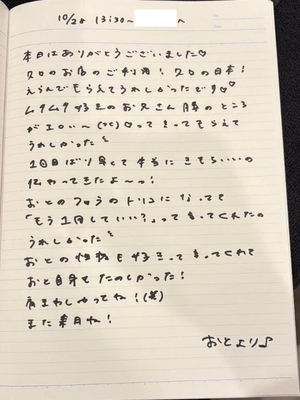 10/28 13:30〜 へ
本日はありがとうございました♡
久々のお店のご利用！久々の日本！
えらんでもらえてうれしかったです♡
ムチムチ好きのお兄さん 膝のところ
がエロい〜 って言ってもらえて
うれしかった
1回目ばり早くて本当にきもちいいの
伝わってきたよ〜っ！
おとのフェラのトリコになってて
「もう1回していい？」って言ってくれたの
うれしかった
おとの性格も好きって言ってくれて
おと自身もたのしかった！
肩まわしやってね！(笑)
また来月ね！
おとより♪